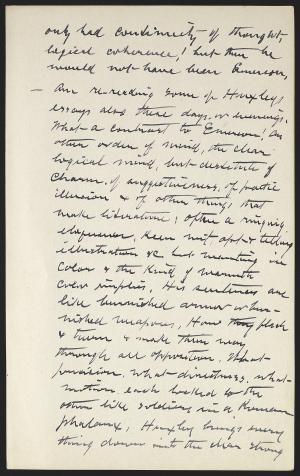 only had continuity of thought,
logical coherence! but then he
would not have been Emerson.
— Am re-reading some of Huxleys
essays also these days, or evenings.
What a contrast to Emerson! An
other order of mind, the clear
logical mind, but destitute of
charm, of suggestiveness, of poetic
illusion & of other things that
make literature; often a ringing
eloquence, keen wit, apt & telling
illustration &c but wanting in
color & the kind of warmth
color implies. His sentences are
like burnished armor
weapons. How they flash
& turn & make their way
through all opposition. What
precision, what directness, what
motion each locked to the
other like soldiers in a Roman
phalanx; Huxley brings every
thing down into the clear strong